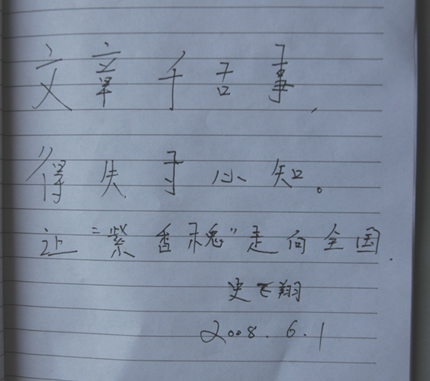 文章千古事，
得失寸心知。
让“紫香槐”走向全国.
史飞翔
2008.6.1